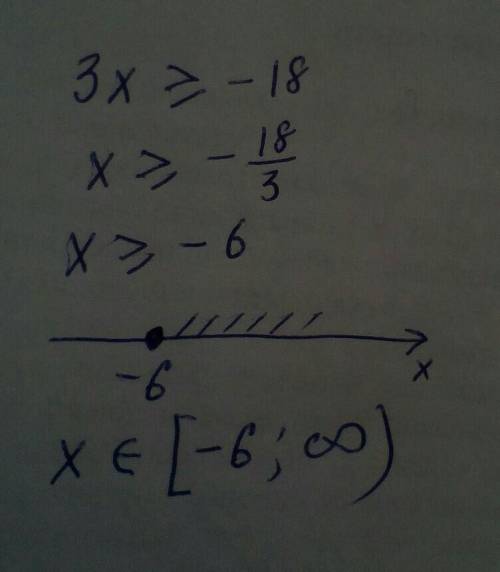 3x ⩾ -18
x ⩾ - 18/3
x ⩾ - 6
-6 x
x ∈ [-6; ∞)